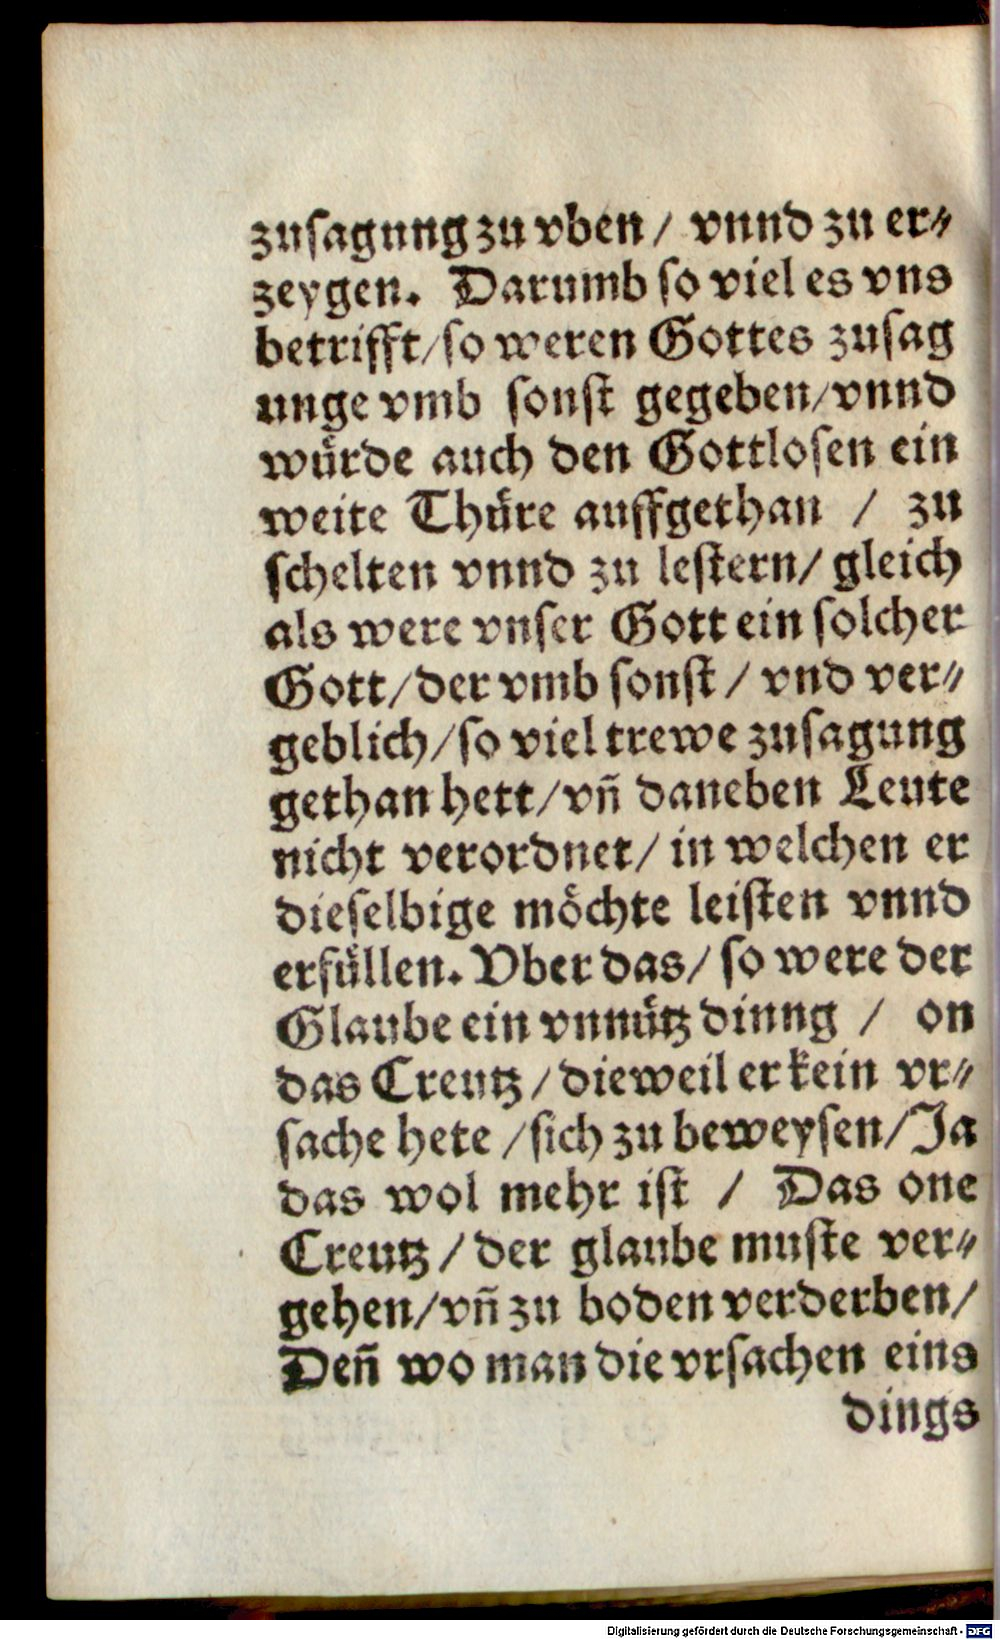 zusagung zu vben / vnnd zu er⸗
zeygen. Darumb so viel es vns
betrifft/so weren Gottes zusag
unge vmb sonst gegeben/vnnd
wuͤrde auch den Gottlosen ein
weite Thuͤre auffgethan / zu
schelten vnnd zu lestern/ gleich
als were vnser Gott ein solcher
Gott/der vmb sonst / vnd ver⸗
geblich/so viel trewe zusagung
gethan hett/vn̄ daneben Leute
nicht verordnet/ in welchen er
dieselbige moͤchte leisten vnnd
erfuͤllen. Vber das/ so were der
Glaube ein vnnuͤtz dinng / on
das Creutz/dieweil er kein vr⸗
sache hete /sich zu beweysen/Ja
das wol mehr ist / Das one
Creutz/der glaube muste ver⸗
gehen/vn̄ zu boden verderben/
Den̄ wo man die vrsachen eins
dings
Digitalisierung gefördert durch die Deutsche Forschungsgemeinschaft - DFG